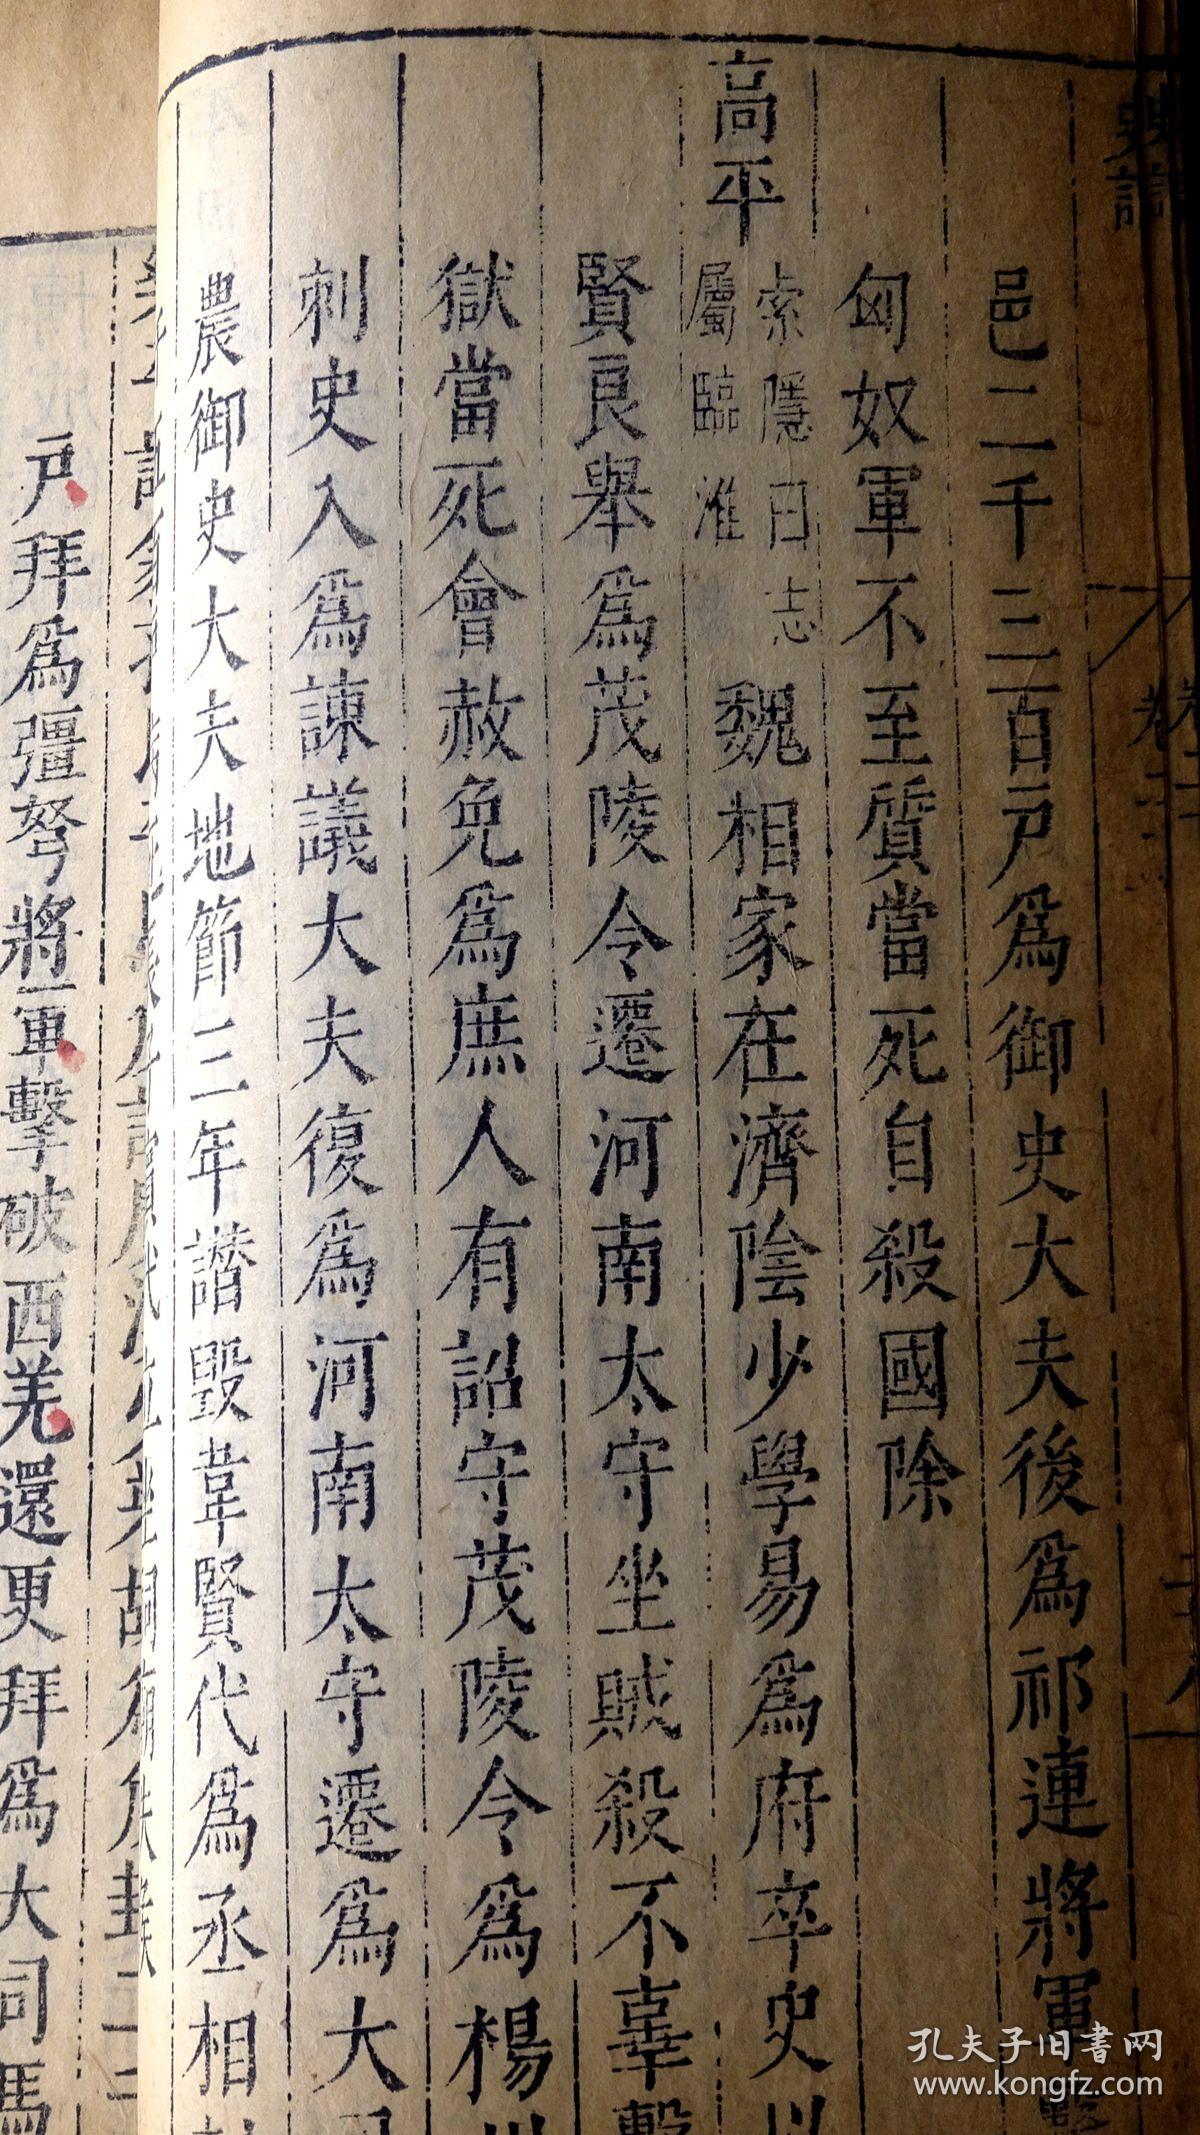 史記
邑二千三百戶爲御史大夫後爲祁連將軍擊
匈奴軍不至質當死自殺國除
高平
索隱曰志
屬臨淮
魏相家在濟陰少學易爲府卒史以
賢良舉爲茂陵令遷河南太守坐賊殺不辜繫
獄當死會赦免爲庶人有詔守茂陵令爲楊州
刺史入爲諫議大夫復爲河南太守遷爲大司
農御史大夫地節三年譖毀韋賢代爲丞相封
戶拜爲彊弩將軍擊破西羌還更拜爲大司馬
孔夫子旧书网
www.kongfz.com